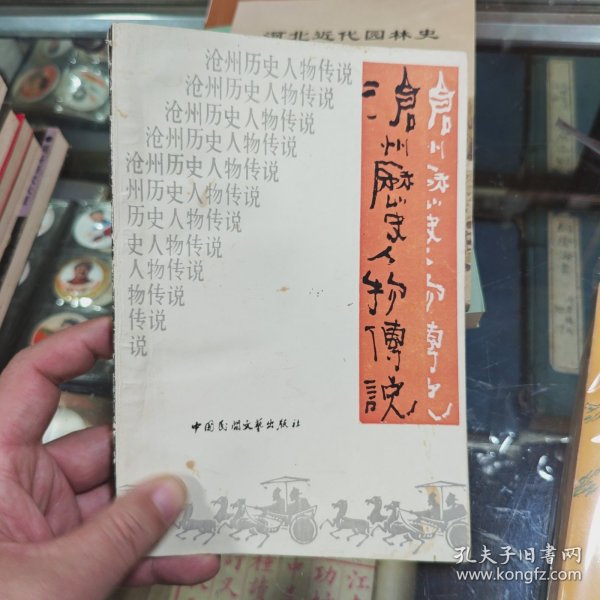 河北近代园林史
沧州历史人物传说
沧州历史人物传说
沧州历史人物传说
沧州历史人物传说
沧州历史人物传说
州历史人物传说
历史人物传说
史人物传说
人物传说
物传说
传说
说
滄州歷史人物傳説
中国民间文艺出版社
孔夫子旧书网
www.kongfz.com